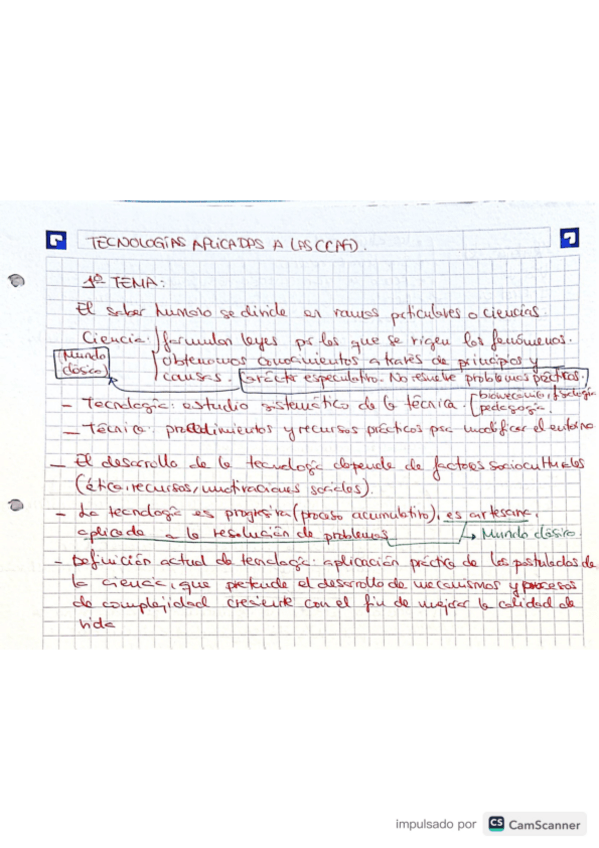 TECNOLOGÍAS APLICADAS A LAS CCAFD.
1º TEMA:
El saber humano se divide en ramas particulares o ciencias.
Ciencia: formulan leyes por las que se rigen los fenómenos.
Mundo clásico
obtenemos conocimientos a través de principios y
causas. Carácter especulativo. No resuelve problemas prácticos.
- Tecnología: estudio sistemático de la técnica. biomecánica, fisiología
pedagogía.
- Técnica: procedimientos y recursos prácticos para modificar el entorno
- El desarrollo de la tecnología depende de factores socioculturales
(ética, recursos, motivaciones sociales).
- La tecnología es progresiva (proceso acumulativo), es artesana,
aplicada a la resolución de problemas → Mundo clásico.
- Definición actual de tecnología: aplicación práctica de los postulados de
la ciencia, que pretende el desarrollo de mecanismos y procesos
de complejidad creciente con el fin de mejorar la calidad de
vida
impulsado por CS CamScanner